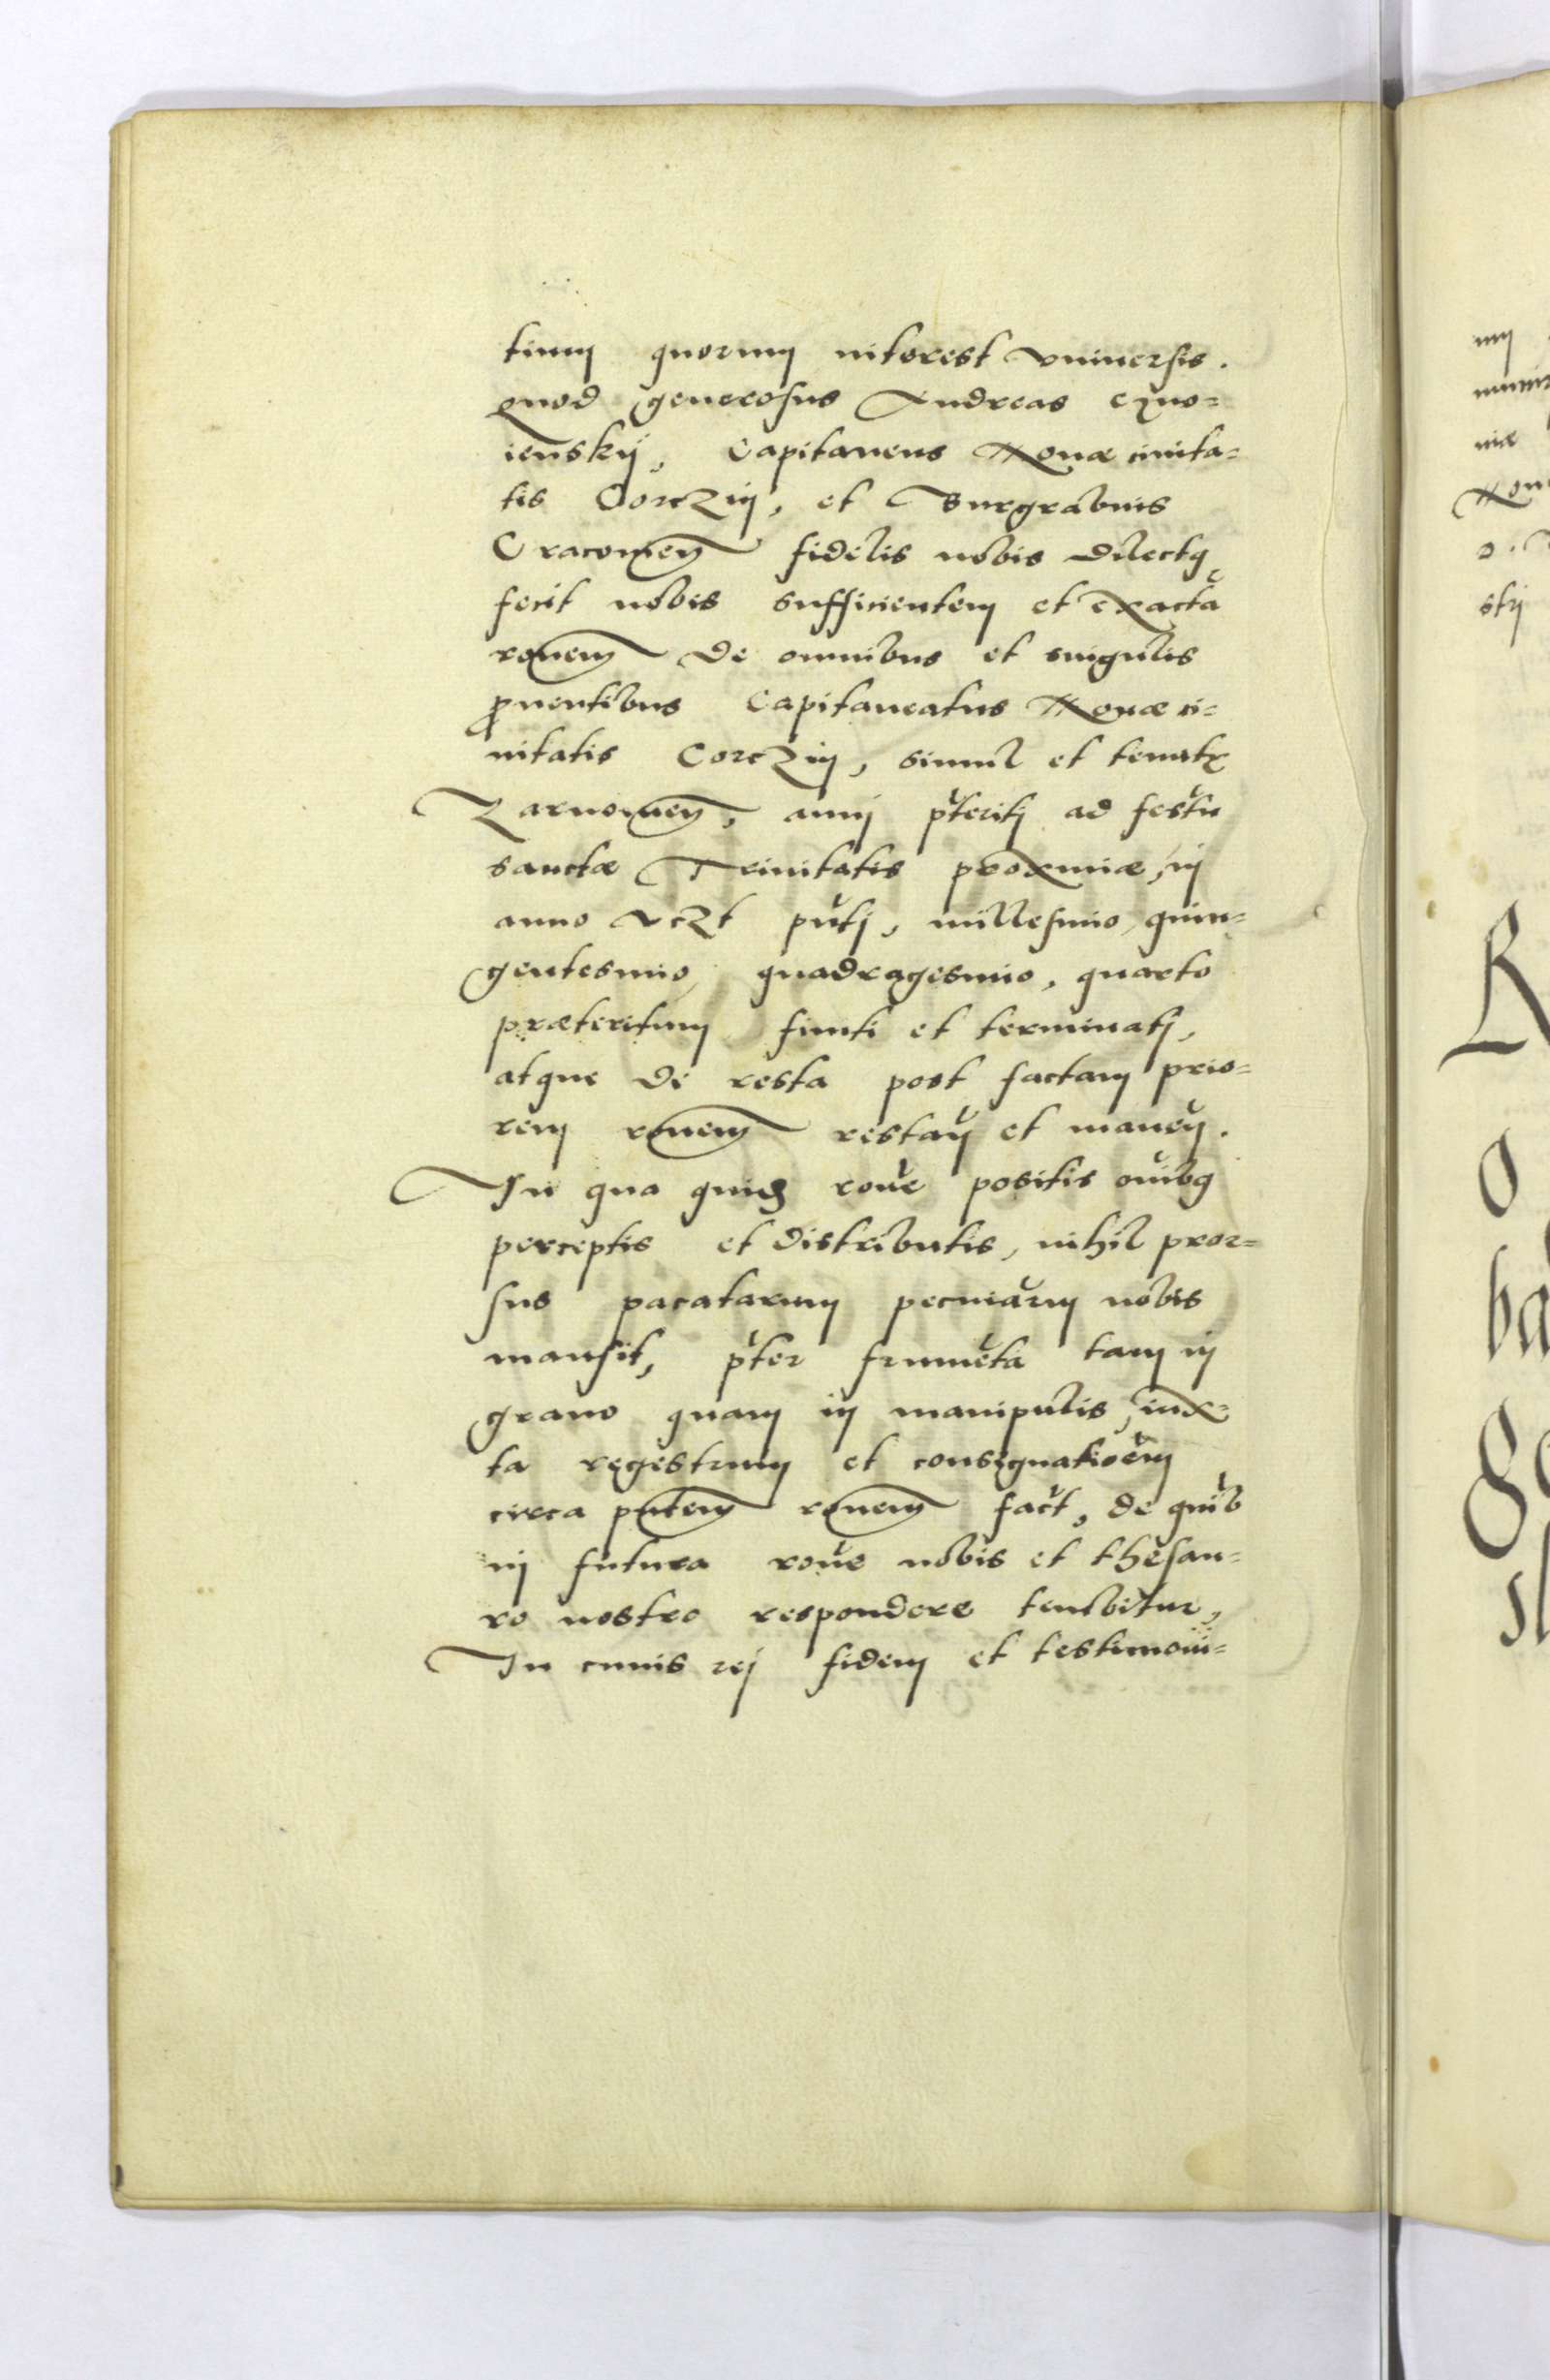 tium quorum interest vniversis.
quod generosus Andreas Czuo=
ienskij, Capitaneus Nouæ ciuita=
tis Corczin, et Burgrabius
Cracouień fidelis nobis dilectus
fecit nobis sufficientem et exactā
ronem de omnibus et singulis
prouentibus Capitaneatus Nouæ ci=
uitatis Corczin, simul et tenutę
Zarnouień, annj pteritj ad festū
sanctæ Trinitatis proximæ, in
anno vczt pñtj, millesimo, quin=
gentesimo, quadragesimo, quarto
præteritum finiti et terminatj,
atque de resta post factam prio=
rem ronem restań et maneń.
In qua quidem rone positis oñibus
perceptis et distributis, nihil pror=
sus pacatarum pecuniarum nobis
mansit, pter frumēta tam in
grano quam in manipulis, iux=
ta regestrum et consignationem
circa pntem ronem fact, de quib
in futura rone nobis et thesau=
ro nostro respondere tenebitur,
In cuius rej fidem et testimoni=